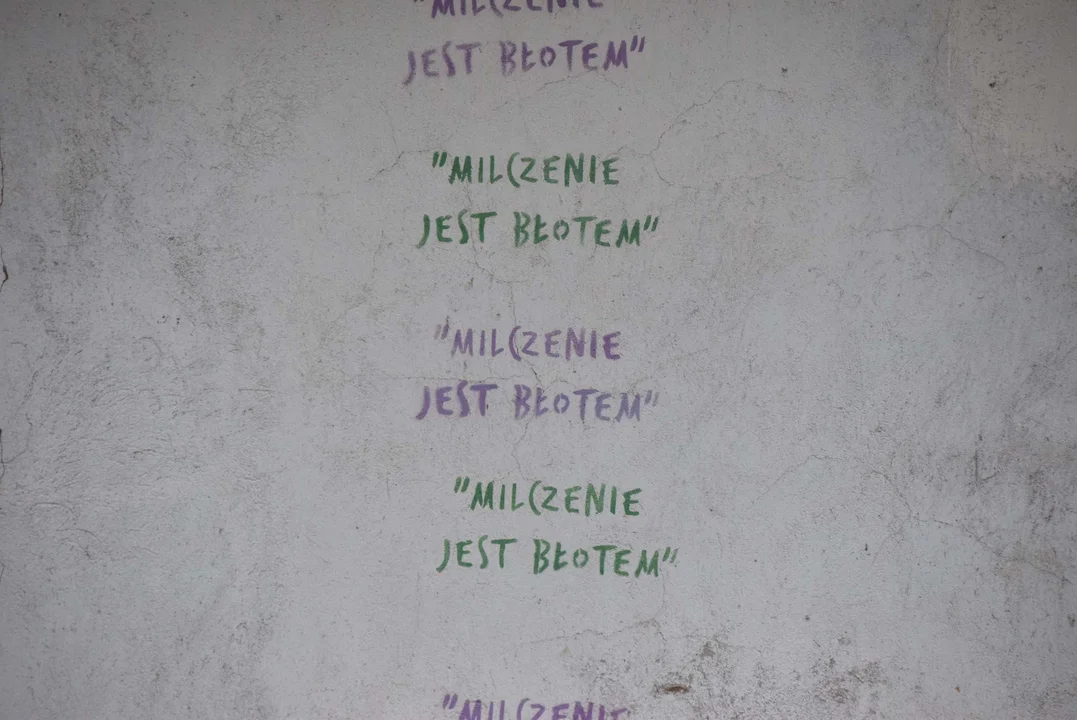 "MILCZENIE
JEST BŁOTEM"
"MILCZENIE
JEST BŁOTEM"
"MILCZENIE
JEST BŁOTEM"
"MILCZENIE
JEST BŁOTEM"
"MILCZENIE